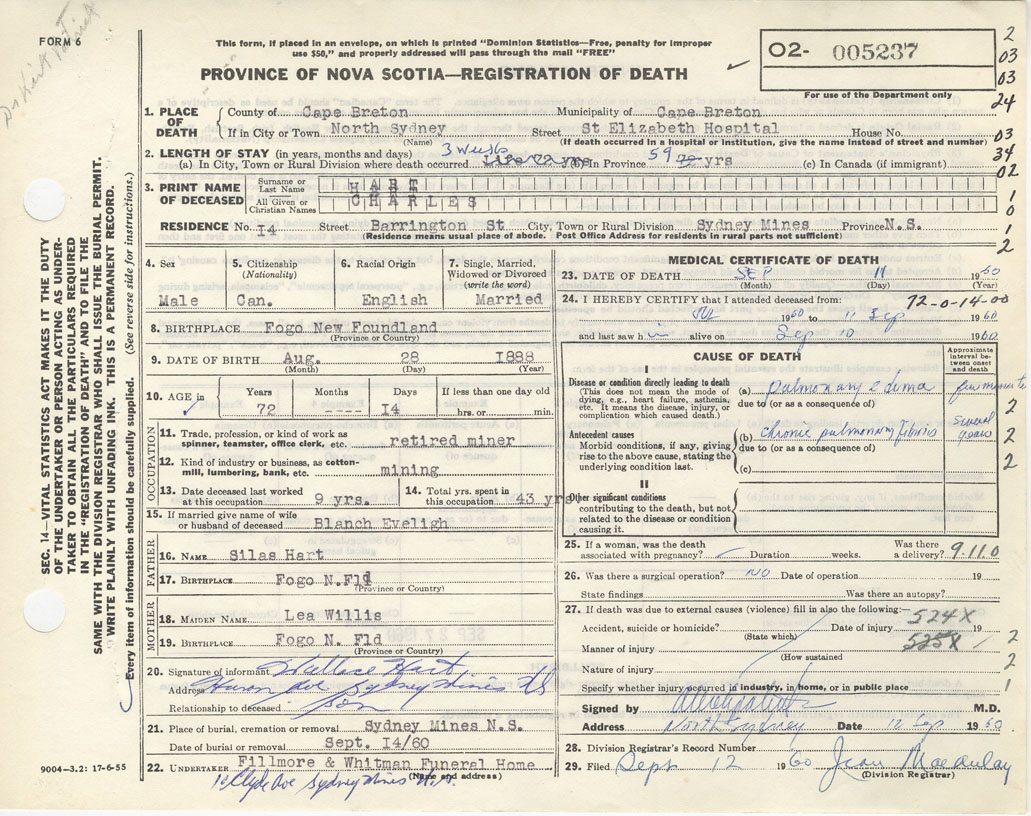 Dr Kirkpatrick
FORM 6
This form, if placed in an envelope, on which is printed "Dominion Statistics—Free, penalty for improper
use $50," and properly addressed will pass through the mail "FREE"
PROVINCE OF NOVA SCOTIA—REGISTRATION OF DEATH
O2- 005237
For use of the Department only
2
03
03
24
03
34
02
1
0
1
2
SEC. 14—VITAL STATISTICS ACT MAKES IT THE DUTY
OF THE UNDERTAKER OR PERSON ACTING AS UNDER-
TAKER TO OBTAIN ALL THE PARTICULARS REQUIRED
IN THE "REGISTRATION OF DEATH" AND TO FILE THE
SAME WITH THE DIVISION REGISTRAR WHO SHALL ISSUE THE BURIAL PERMIT.
WRITE PLAINLY WITH UNFADING INK. THIS IS A PERMANENT RECORD.
Every item of information should be carefully supplied. (See reverse side for instructions.)
1. PLACE OF DEATH
County of Cape Breton Municipality of Cape Breton
If in City or Town North Sydney Street St Elizabeth Hospital House No.
(Name) (If death occurred in a hospital or institution, give the name instead of street and number)
2. LENGTH OF STAY (in years, months and days) 3 weeks
(a) In City, Town or Rural Division where death occurred (b) In Province 59 yrs (c) In Canada (if immigrant)
3. PRINT NAME OF DECEASED
Surname or Last Name HART
All Given or Christian Names CHARLES
RESIDENCE No. I4 Street Barrington St City, Town or Rural Division Sydney Mines Province N.S.
(Residence means usual place of abode. Post Office Address for residents in rural parts not sufficient)
4. Sex 5. Citizenship (Nationality) 6. Racial Origin 7. Single, Married, Widowed or Divorced (write the word)
Male Can. English Married
8. BIRTHPLACE Fogo New Foundland
(Province or Country)
9. DATE OF BIRTH Aug. 28 I888
(Month) (Day) (Year)
10. AGE Years Months Days If less than one day old
72 ---- I4 hrs. or min.
OCCUPATION
11. Trade, profession, or kind of work as spinner, teamster, office clerk, etc. retired miner
12. Kind of industry or business, as cotton-mill, lumbering, bank, etc. mining
13. Date deceased last worked at this occupation 9 yrs. 14. Total yrs. spent in this occupation 43 yrs.
15. If married give name of wife or husband of deceased Blanch Eveligh
FATHER
16. NAME Silas Hart
17. BIRTHPLACE Fogo N.Fld
(Province or Country)
MOTHER
18. MAIDEN NAME Lea Willis
19. BIRTHPLACE Fogo N. Fld
(Province or Country)
20. Signature of informant Wallace Hart
Address Huron Ave Sydney Mines NS
Relationship to deceased Son
21. Place of burial, cremation or removal Sydney Mines N.S.
Date of burial or removal Sept. I4/60
22. UNDERTAKER Fillmore & Whitman Funeral Home
(Name and address)
Clyde Ave Sydney Mines N.S.
9004-3.2: 17-6-55
MEDICAL CERTIFICATE OF DEATH
23. DATE OF DEATH SEP 11 1960
(Month) (Day) (Year)
24. I HEREBY CERTIFY that I attended deceased from: 72-0-14-00
1960 to 11 Sep 1960
and last saw him alive on Sep 10 1960
CAUSE OF DEATH
Approximate interval between onset and death
I
Disease or condition directly leading to death
(This does not mean the mode of dying, e.g., heart failure, asthenia, etc. It means the disease, injury, or complication which caused death.)
(a) pulmonary edema few minutes
due to (or as a consequence of)
2
Antecedent causes
Morbid conditions, if any, giving rise to the above cause, stating the underlying condition last.
(b) chronic pulmonary fibrosis several years
due to (or as a consequence of)
2
(c)
2
II
Other significant conditions contributing to the death, but not related to the disease or condition causing it.
25. If a woman, was the death associated with pregnancy? Duration weeks. Was there a delivery? 9.11.0
26. Was there a surgical operation? NO Date of operation 19
State findings Was there an autopsy?
27. If death was due to external causes (violence) fill in also the following:— 524X
Accident, suicide or homicide? Date of injury 19
(State which) 525X
Manner of injury 2
(How sustained
Nature of injury 2
Specify whether injury occurred in industry, in home, or in public place 1
Signed by M.D.
Address North Sydney Date 12 Sep 1960
28. Division Registrar's Record Number
29. Filed Sept 12 1960 Jean Macaulay
(Division Registrar)